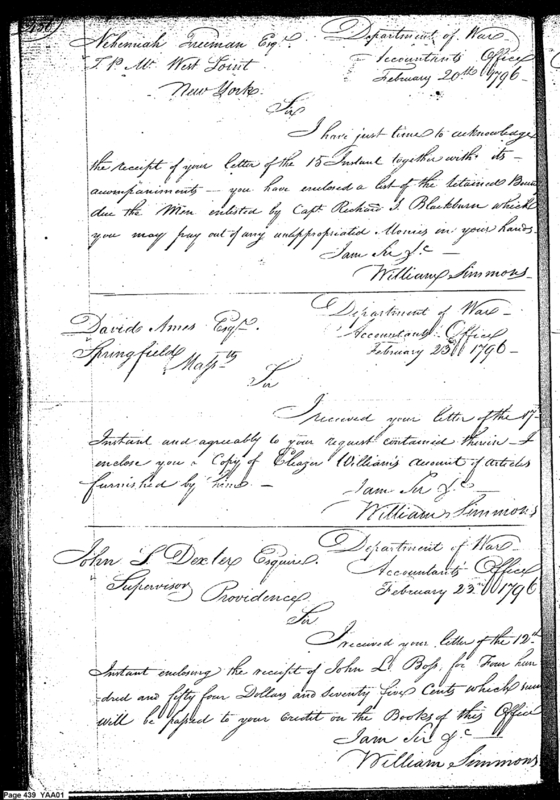 Nehemiah Freeman Esqr. Department of War
D.P.M. West Point Accountants Office
February 20th 1796
New York
Sir
I have just time to acknowledge
the receipt of your letter of the 15 Instant together with its
accompaniments — you have enclosed a list of the retained
due the Men enlisted by Capt. Richard S. Blackburn which
you may pay out of any unappropriated Monies in your hands.
I am Sir &c —
William Simmons
David Ames Esqr. Department of War
Springfield Accountants Office
Massts February 23d 1796
Sir
I received your letter of the 17
Instant and agreeably to your request contained therein I
enclose you a Copy of Eleazer William's account of articles
furnished by him — I am Sir &c —
William Simmons
John S. Dexter Esquire. Department of War
Supervisor Accountants Office
Providence February 22d 1796
Sir
I received your letter of the 12th
Instant enclosing the receipt of John L. Boss, for Four hun
dred and fifty four Dollars and seventy five Cents which sum
will be passed to your Credit on the Books of this Office
I am Sir &c —
William Simmons
Page 439 YAA01